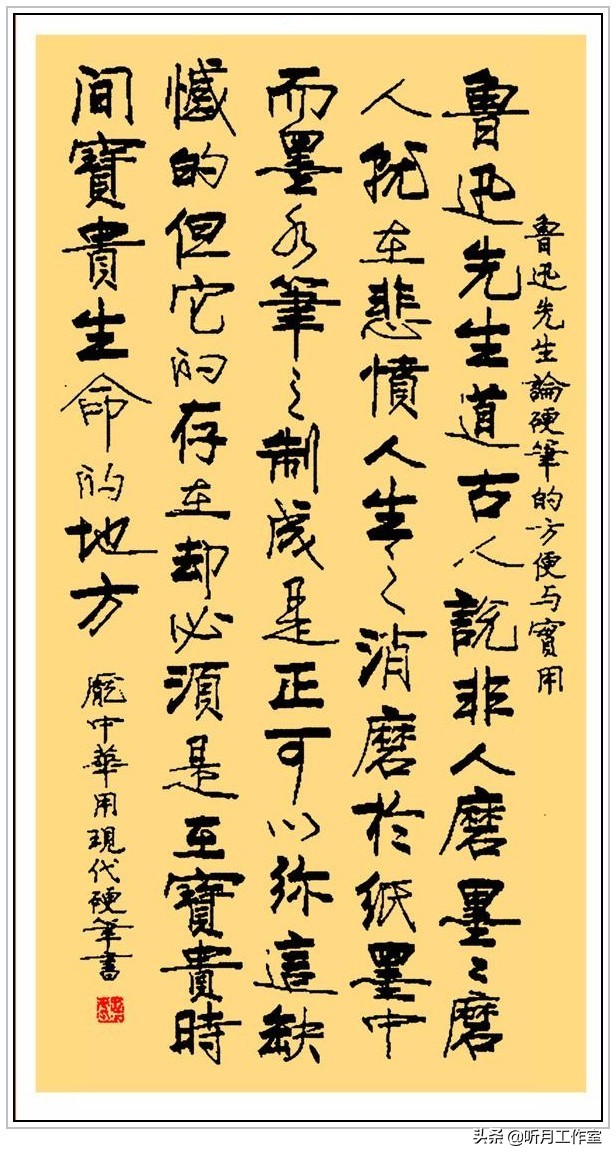 魯迅先生論硬筆的方便与實用
魯迅先生道古人說非人磨墨々磨
人就在悲憤人生之消磨於紙墨中
而墨水筆之制成是正可以弥這缺
憾的但它的存在却必須是至寶貴時
間寶貴生命的地方
龐中華用現代硬筆書
头条 @听月工作室